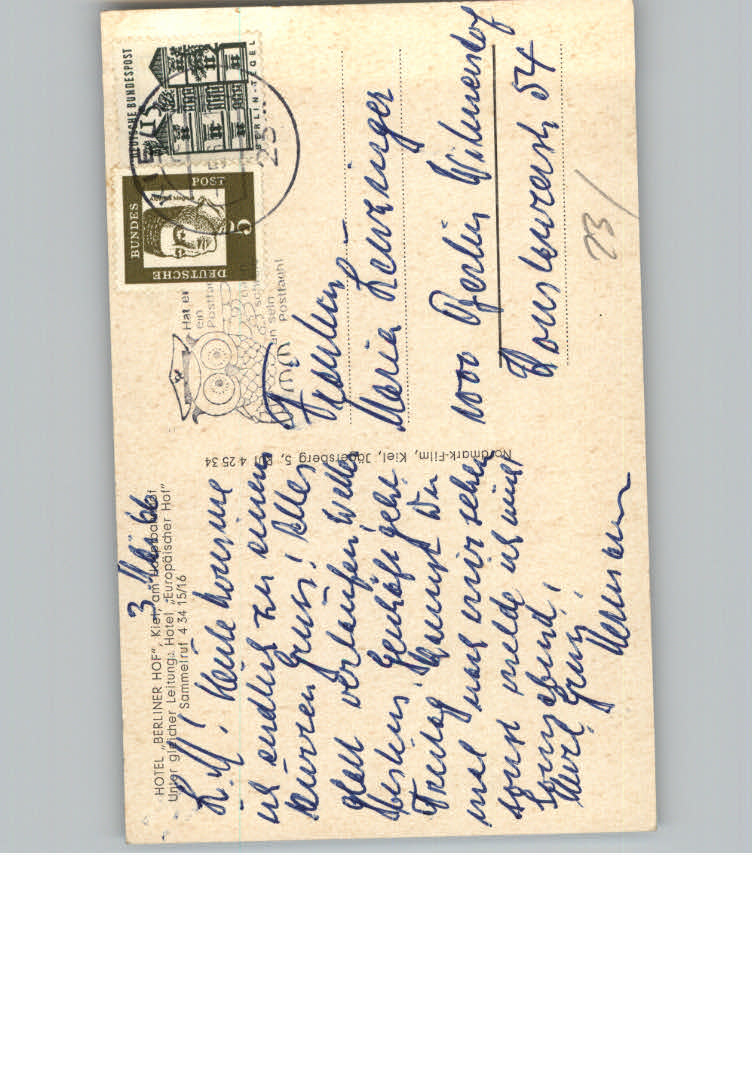 HOTEL „BERLINER HOF", Kiel, am Hauptbahnhof
Unter gleicher Leitung: Hotel „Europäischer Hof"
Sammelruf 4 34 15/16
3. 66
L. M! Heute komme
ich endlich zu einem
kurzen Gruss! Alles
glatt verlaufen, Wetter
bestens, Geschäft geht.
Freitag kommst Du
mal nach mir sehen
sonst melde ich mich
Sonnabend!
Herzl. Gruß!
Hermann
Nordmark-Film, Kiel, Jägersberg 5, Ruf 4 25 34
DEUTSCHE BUNDESPOST
BERLIN-TEGEL
DEUTSCHE
BUNDES
POST
5
23
Hat er
ein
Postfach
sein
Postfach!
Fräulein
Maria
1000 Berlin Wilmersdorf
54
23/